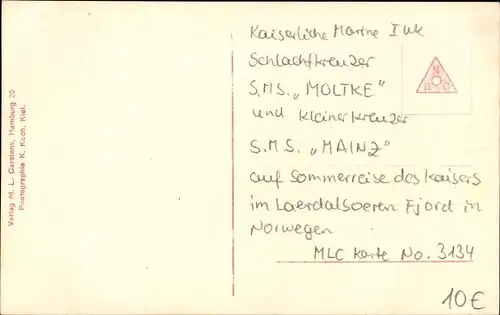 Verlag M. L. Carstens, Hamburg 20
Photographie K. Koch, Kiel.
Kaiserliche Marine I WK
Schlachtkreuzer
S.M.S. „MOLTKE"
und kleiner Kreuzer
S.M.S. „MAINZ"
auf Sommerreise des Kaisers
im Laerdalsoeren Fjord in
Norwegen
MLC Karte No. 3134
10€